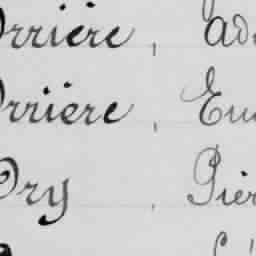 Orrière, Ad
Orrière, Eu
Ory, Pier